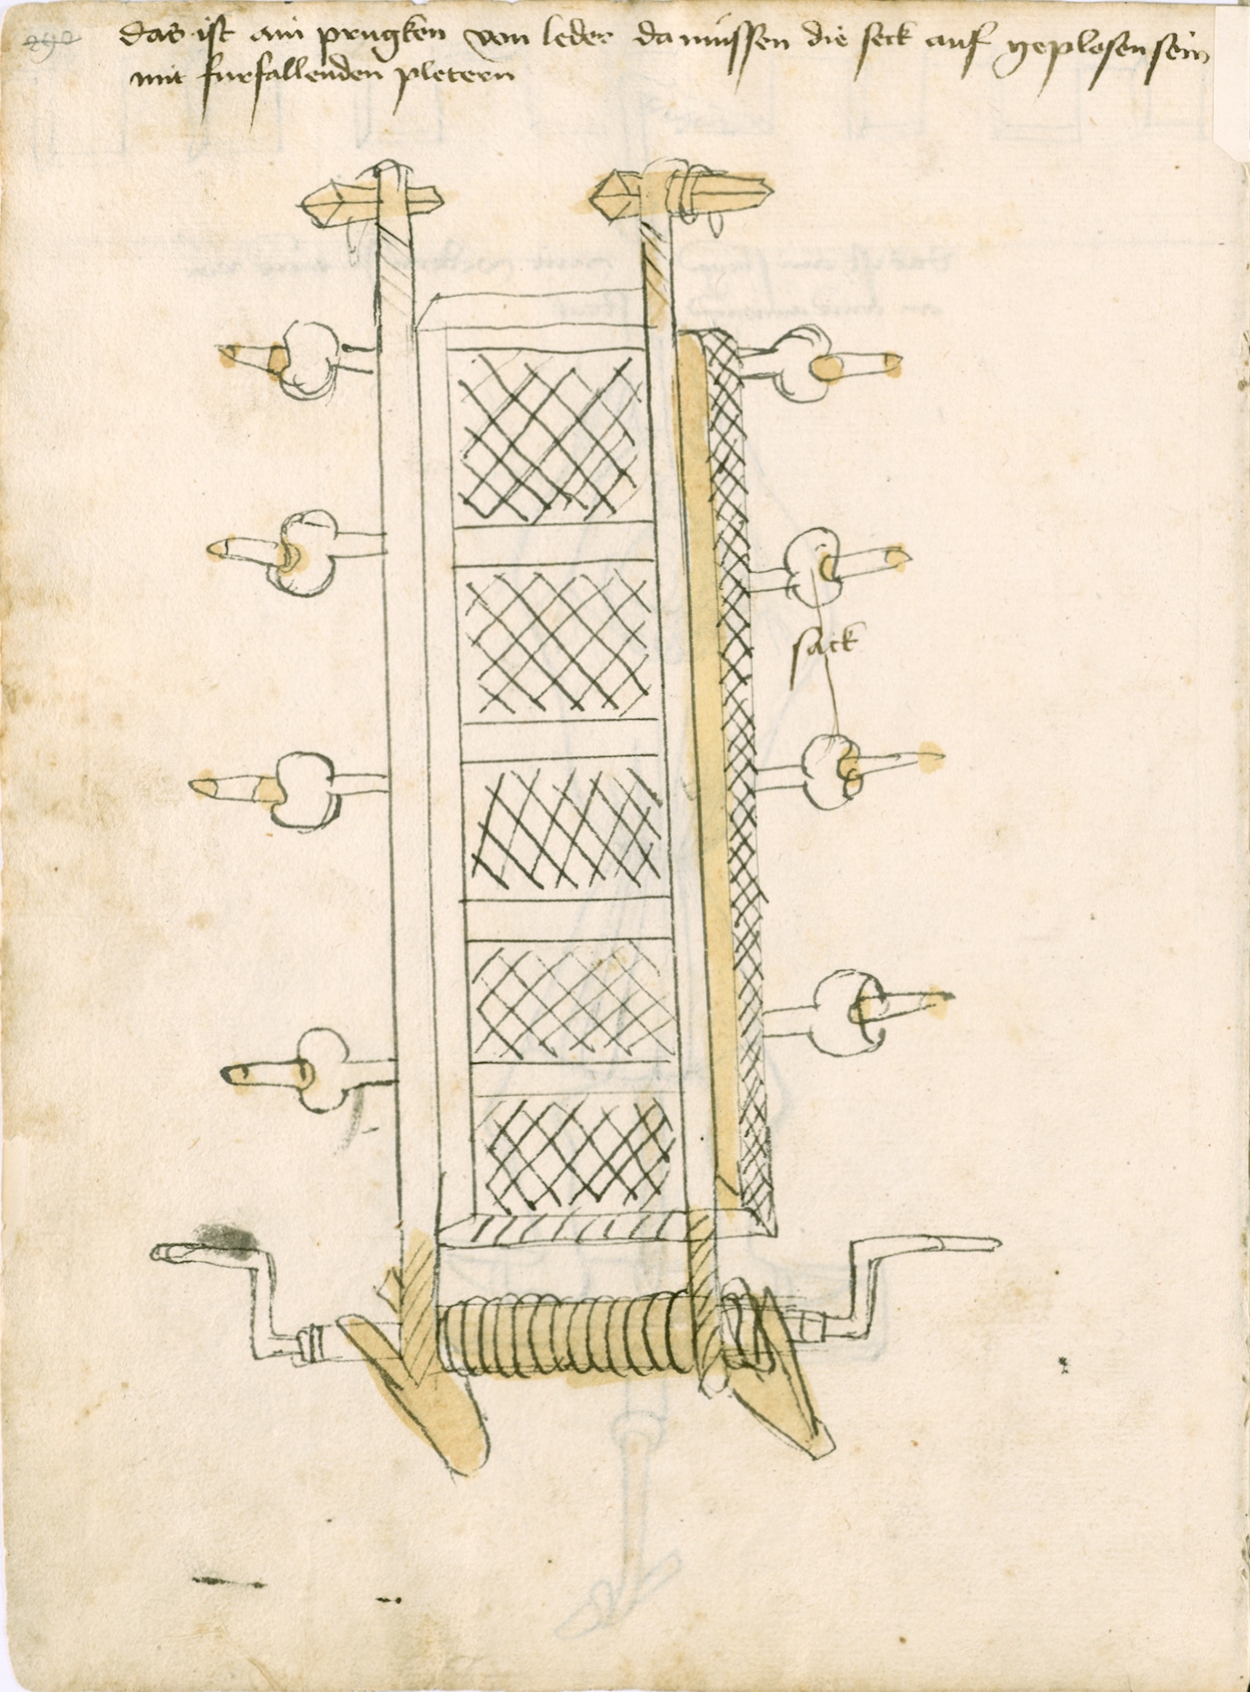 290
das ist ain prugken von leder da müssen die seck auf geplasen sein
mit furfallenden pletern
sack